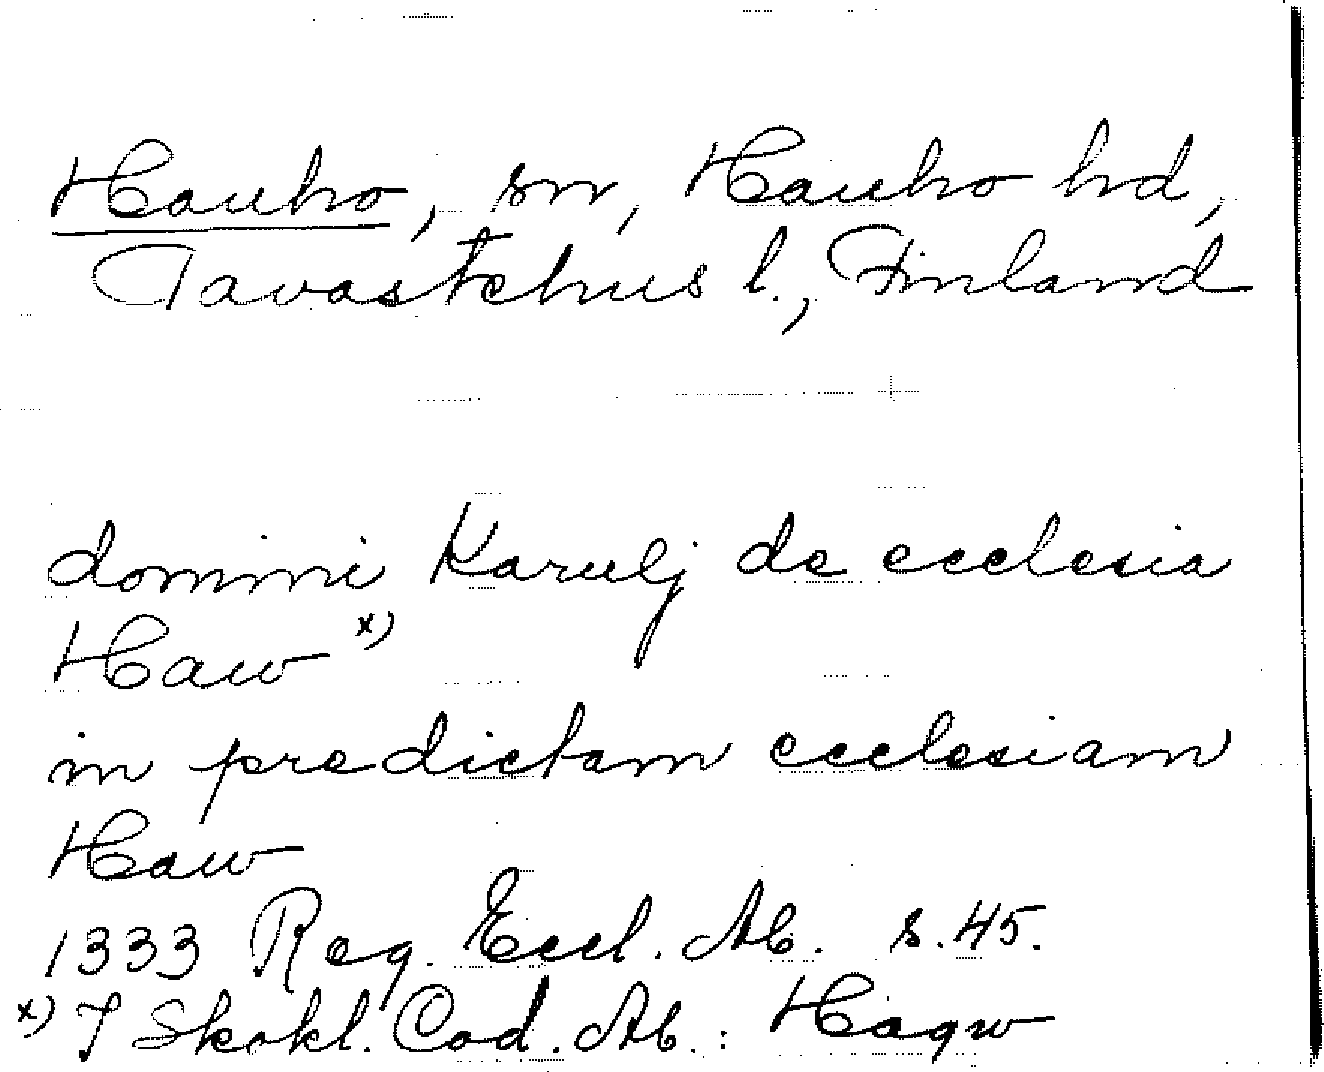 Hauho, sn, Hauho hd,
Tavastehus l., Finland
domini Karulj de ecclesia
Haw x)
in predictam ecclesiam
Haw
1333 Reg. Eccl. Ab. s. 45.
x) I Skokl. Cod. Ab.: Haqw